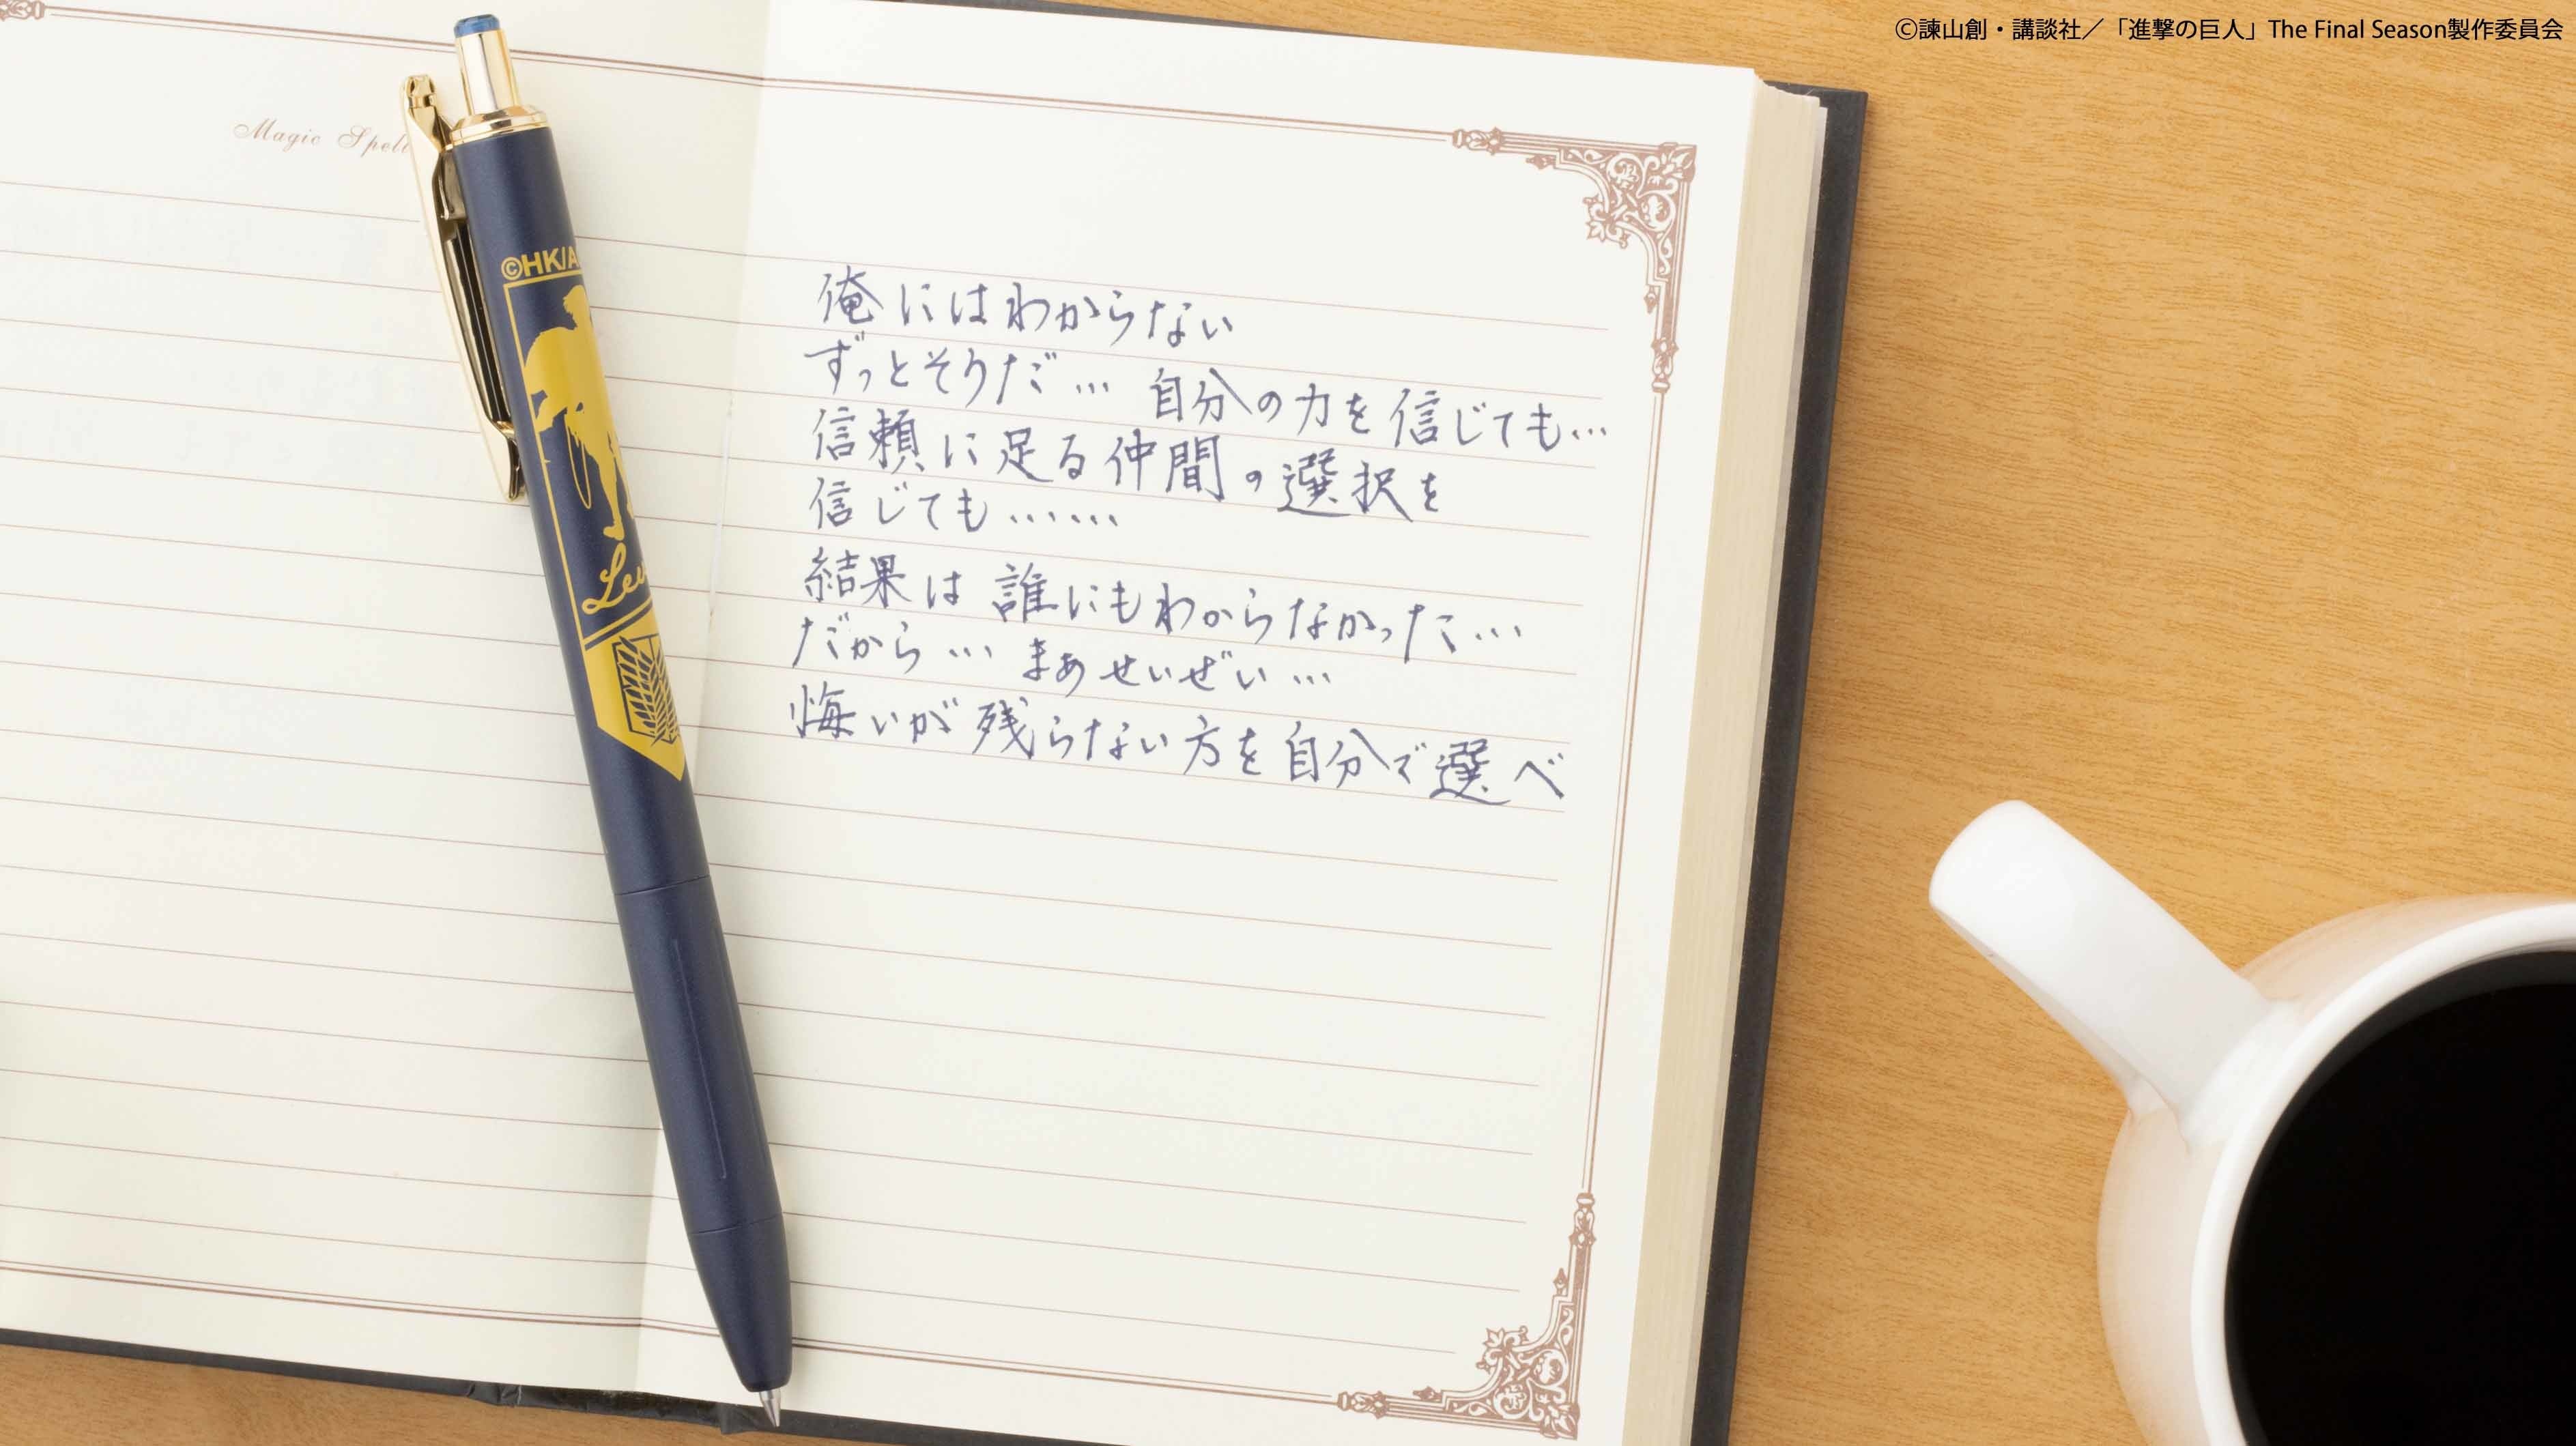 ©諫山創・講談社／「進撃の巨人」The Final Season製作委員会
Magic Spell
©HK/A
Lev
俺にはわからない
ずっとそうだ… 自分の力を信じても…
信頼に足る仲間の選択を
信じても……
結果は誰にもわからなかった…
だから… まぁせいぜい…
悔いが残らない方を自分で選べ